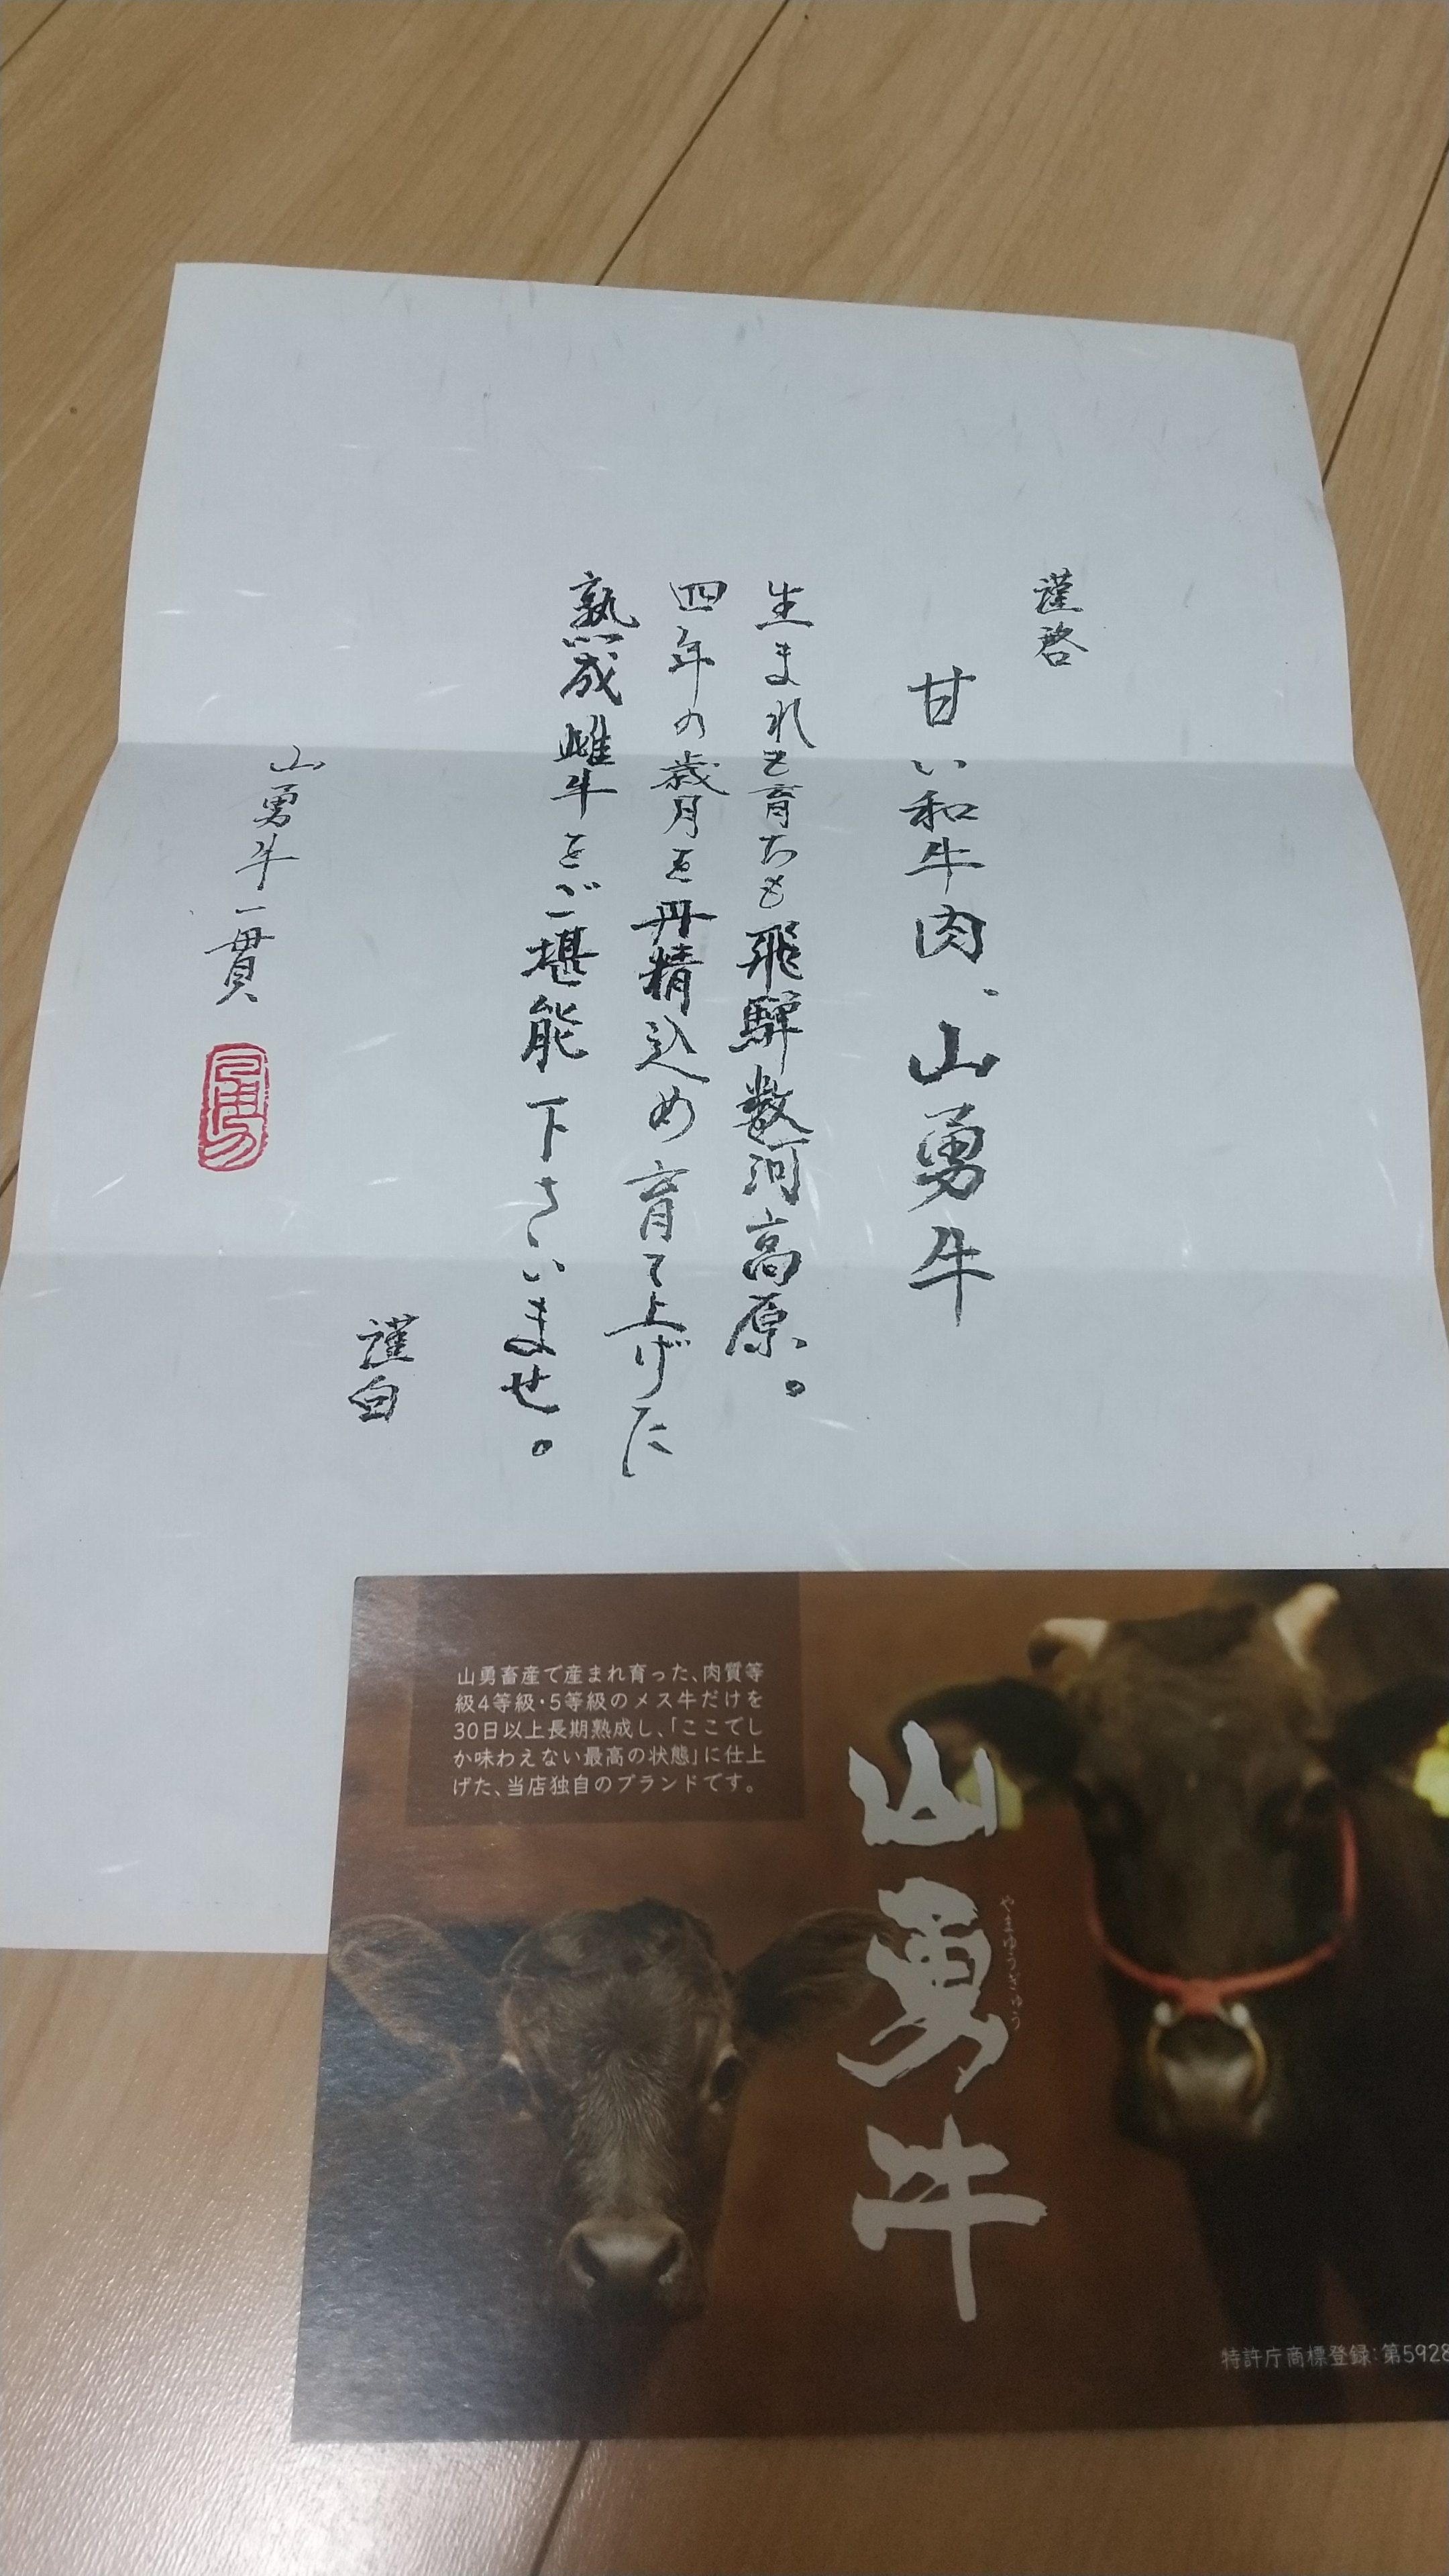 謹啓
甘い和牛肉、山勇牛
生まれも育ちも飛騨数河高原。
四年の歳月を丹精込め育て上げた
熟成雌牛をご堪能下さいませ。
謹白
山勇牛一貫
山勇畜産で産まれ育った、肉質等
級4等級・5等級のメス牛だけを
30日以上長期熟成し、「ここでし
か味わえない最高の状態」に仕上
げた、当店独自のブランドです。
山勇牛
やまゆうぎゅう
特許庁商標登録：第5928